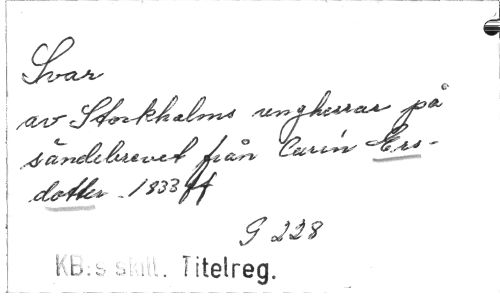 Svar
av Stockholms ungherrar på
sändebrevet från Carin Ers-
dotter. 1833 ff
G 228
KB:s skill. Titelreg.